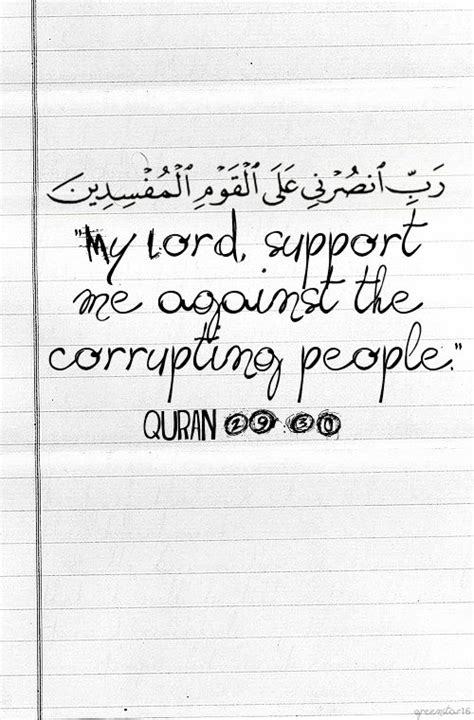 رَبِّ ٱنصُرۡنِي عَلَى ٱلۡقَوۡمِ ٱلۡمُفۡسِدِينَ
"My Lord, support
me against the
corrupting people."
QURAN 29:30
greenstar16